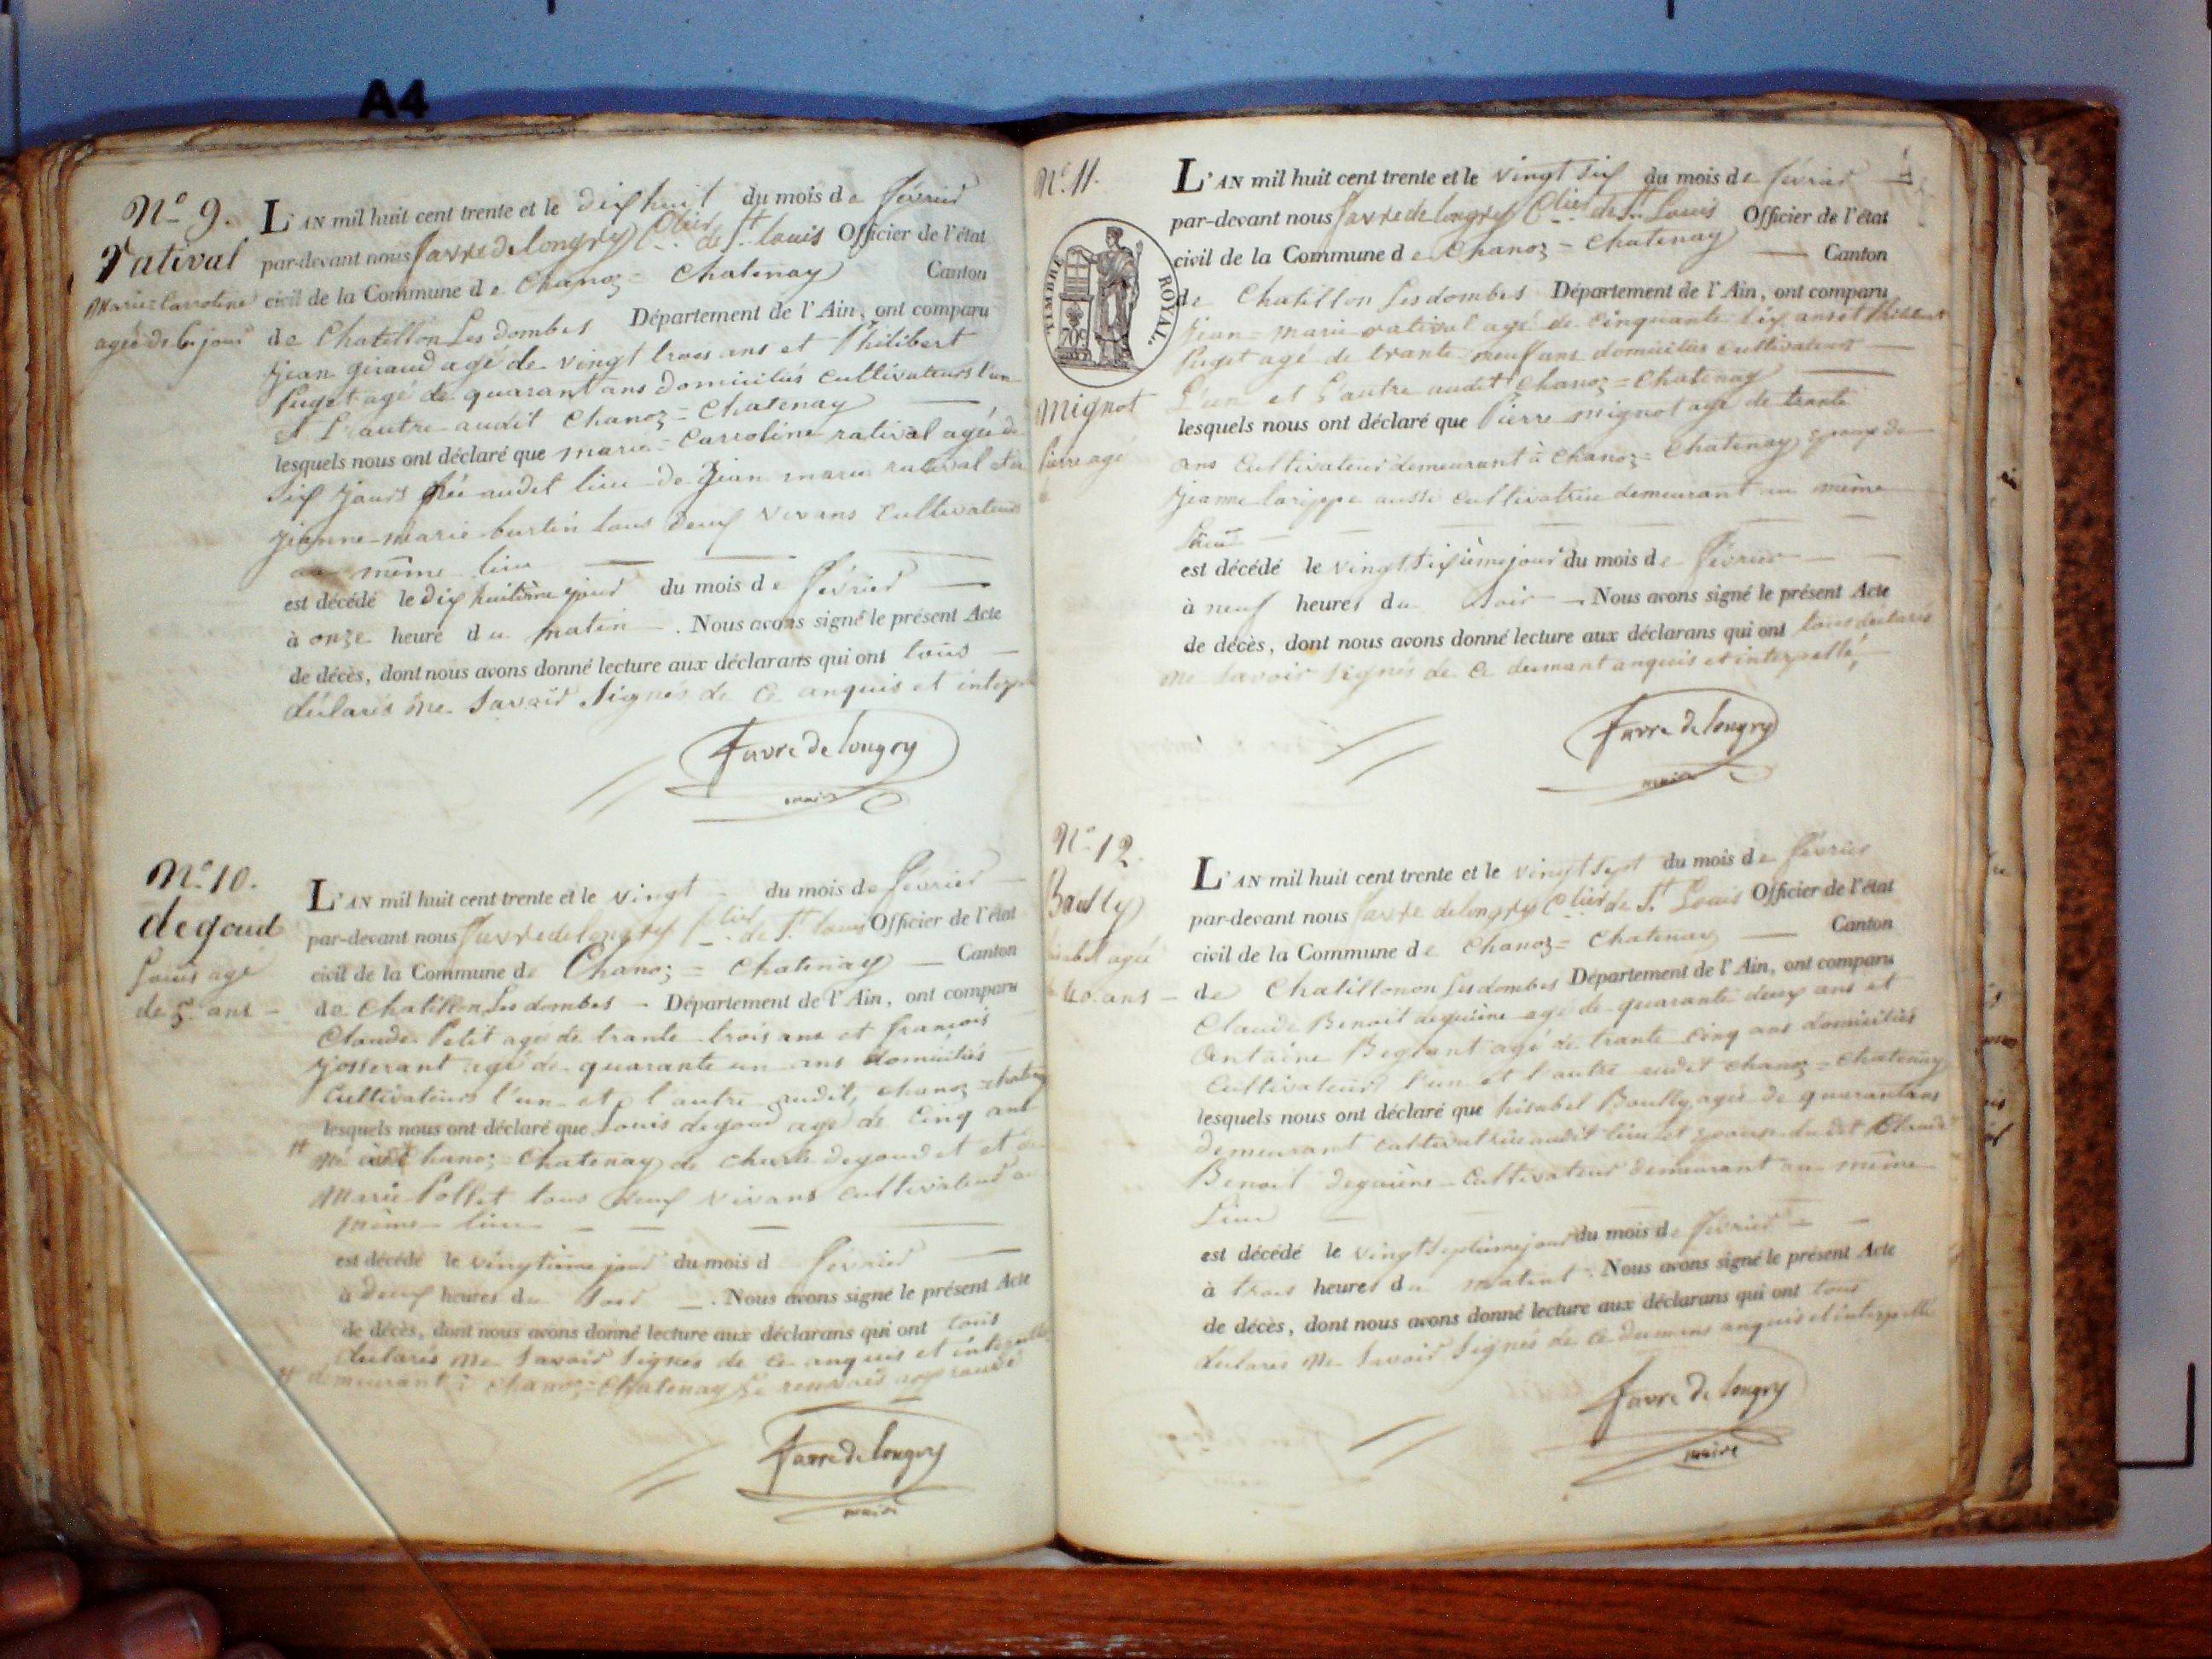 A4
Nº 9.
ratival
Marie=Carroline
agée de 6 jours
L'AN mil huit cent trente et le dix huit du mois de février
par-devant nous favre de longry Clier de St. Louis Officier de l'état
civil de la Commune de Chanoz = Chatenay Canton
de Chatillon Les dombes Département de l'Ain, ont comparu
jean giraud agé de vingt trois ans et Philibert
Puget agé de quarant ans domiciliés cultivateurs l'un
et L'autre audit Chanoz = Chatenay
lesquels nous ont déclaré que marie = Carroline ratival agée de
six jours née audit lieu de jean marie ratival et de
jeanne-marie burtin tous deux vivans cultivateurs
au même lieu
est décédé le dix huitième jour du mois de février
à onze heure du matin . Nous avons signé le présent Acte
de décès, dont nous avons donné lecture aux déclarans qui ont tous
déclarés ne savoir signés de ce anquis et
favre de longry
maire
Nº 10.
degoud
Louis agé
de 5 ans
L'AN mil huit cent trente et le vingt du mois de février
par-devant nous favre de longry Clier de St. Louis Officier de l'état
civil de la Commune de Chanoz = Chatenay Canton
de Chatillon Les dombes Département de l'Ain, ont comparu
Claude Petit agé de trante trois ans et françois
josserant agé de quarante un ans domiciliés
Cultivateurs l'un et l'autre audit, chanoz =
lesquels nous ont déclaré que Louis degoud agé de Cinq ans
# né Chanoz = Chatenay de degoud et et de
Marie Pollet tous deux vivans cultivateurs au
même lieu
est décédé le vingtième jour du mois d février
à deux heures du soir . Nous avons signé le présent Acte
de décès, dont nous avons donné lecture aux déclarans qui ont tous
déclarés ne savoir signés de ce anquis et
# demeurant à chanoz = Chatenay Le
favre de longry
maire
Nº 11.
TIMBRE ROYAL.
Mignot
Pierre agé
L'AN mil huit cent trente et le vingt six du mois de février
par-devant nous favre de longry Clier de St. Louis Officier de l'état
civil de la Commune de Chanoz = Chatenay Canton
de Chatillon Les dombes Département de l'Ain, ont comparu
jean = marie ratival agé de Cinquante six ans et Philibert
Puget agé de trante neuf ans domiciliés cultivateurs
L'un et L'autre audit Chanoz = Chatenay
lesquels nous ont déclaré que Pierre mignot agé de trante
ans Cultivateur demeurant à Chanoz = Chatenay époux de
jeanne larippe aussi cultivatrice demeurant au même
Lieu
est décédé le vingt sixième jour du mois de février
à neuf heures du soir Nous avons signé le présent Acte
de décès, dont nous avons donné lecture aux déclarans qui ont tous déclarés
ne savoir signés de ce anquis et interpellé,
favre de longry
maire
Nº 12.
Boully
agée
40. ans
L'AN mil huit cent trente et le vingt sept du mois de février
par-devant nous favre de longry Clier de St. Louis Officier de l'état
civil de la Commune de Chanoz = Chatenay Canton
de Chatillonon Les dombes Département de l'Ain, ont comparu
Claude Benoit agé de quarante deux ans et
Antoine agé de trante Cinq ans domiciliés
Cultivateurs l'un et l'autre audit chanoz = Chatenay
lesquels nous ont déclaré que hisabel Boully agée de quarant ans
demeurant cultivatrice audit lieu et epouse dudit Claude
Benoit Cultivateur demeurant au même
Lieu
est décédé le vingt septième jour du mois de février
à trois heures du matint . Nous avons signé le présent Acte
de décès, dont nous avons donné lecture aux déclarans qui ont tous
déclarés ne savoir signés de ce anquis et interpellé
favre de longry
maire